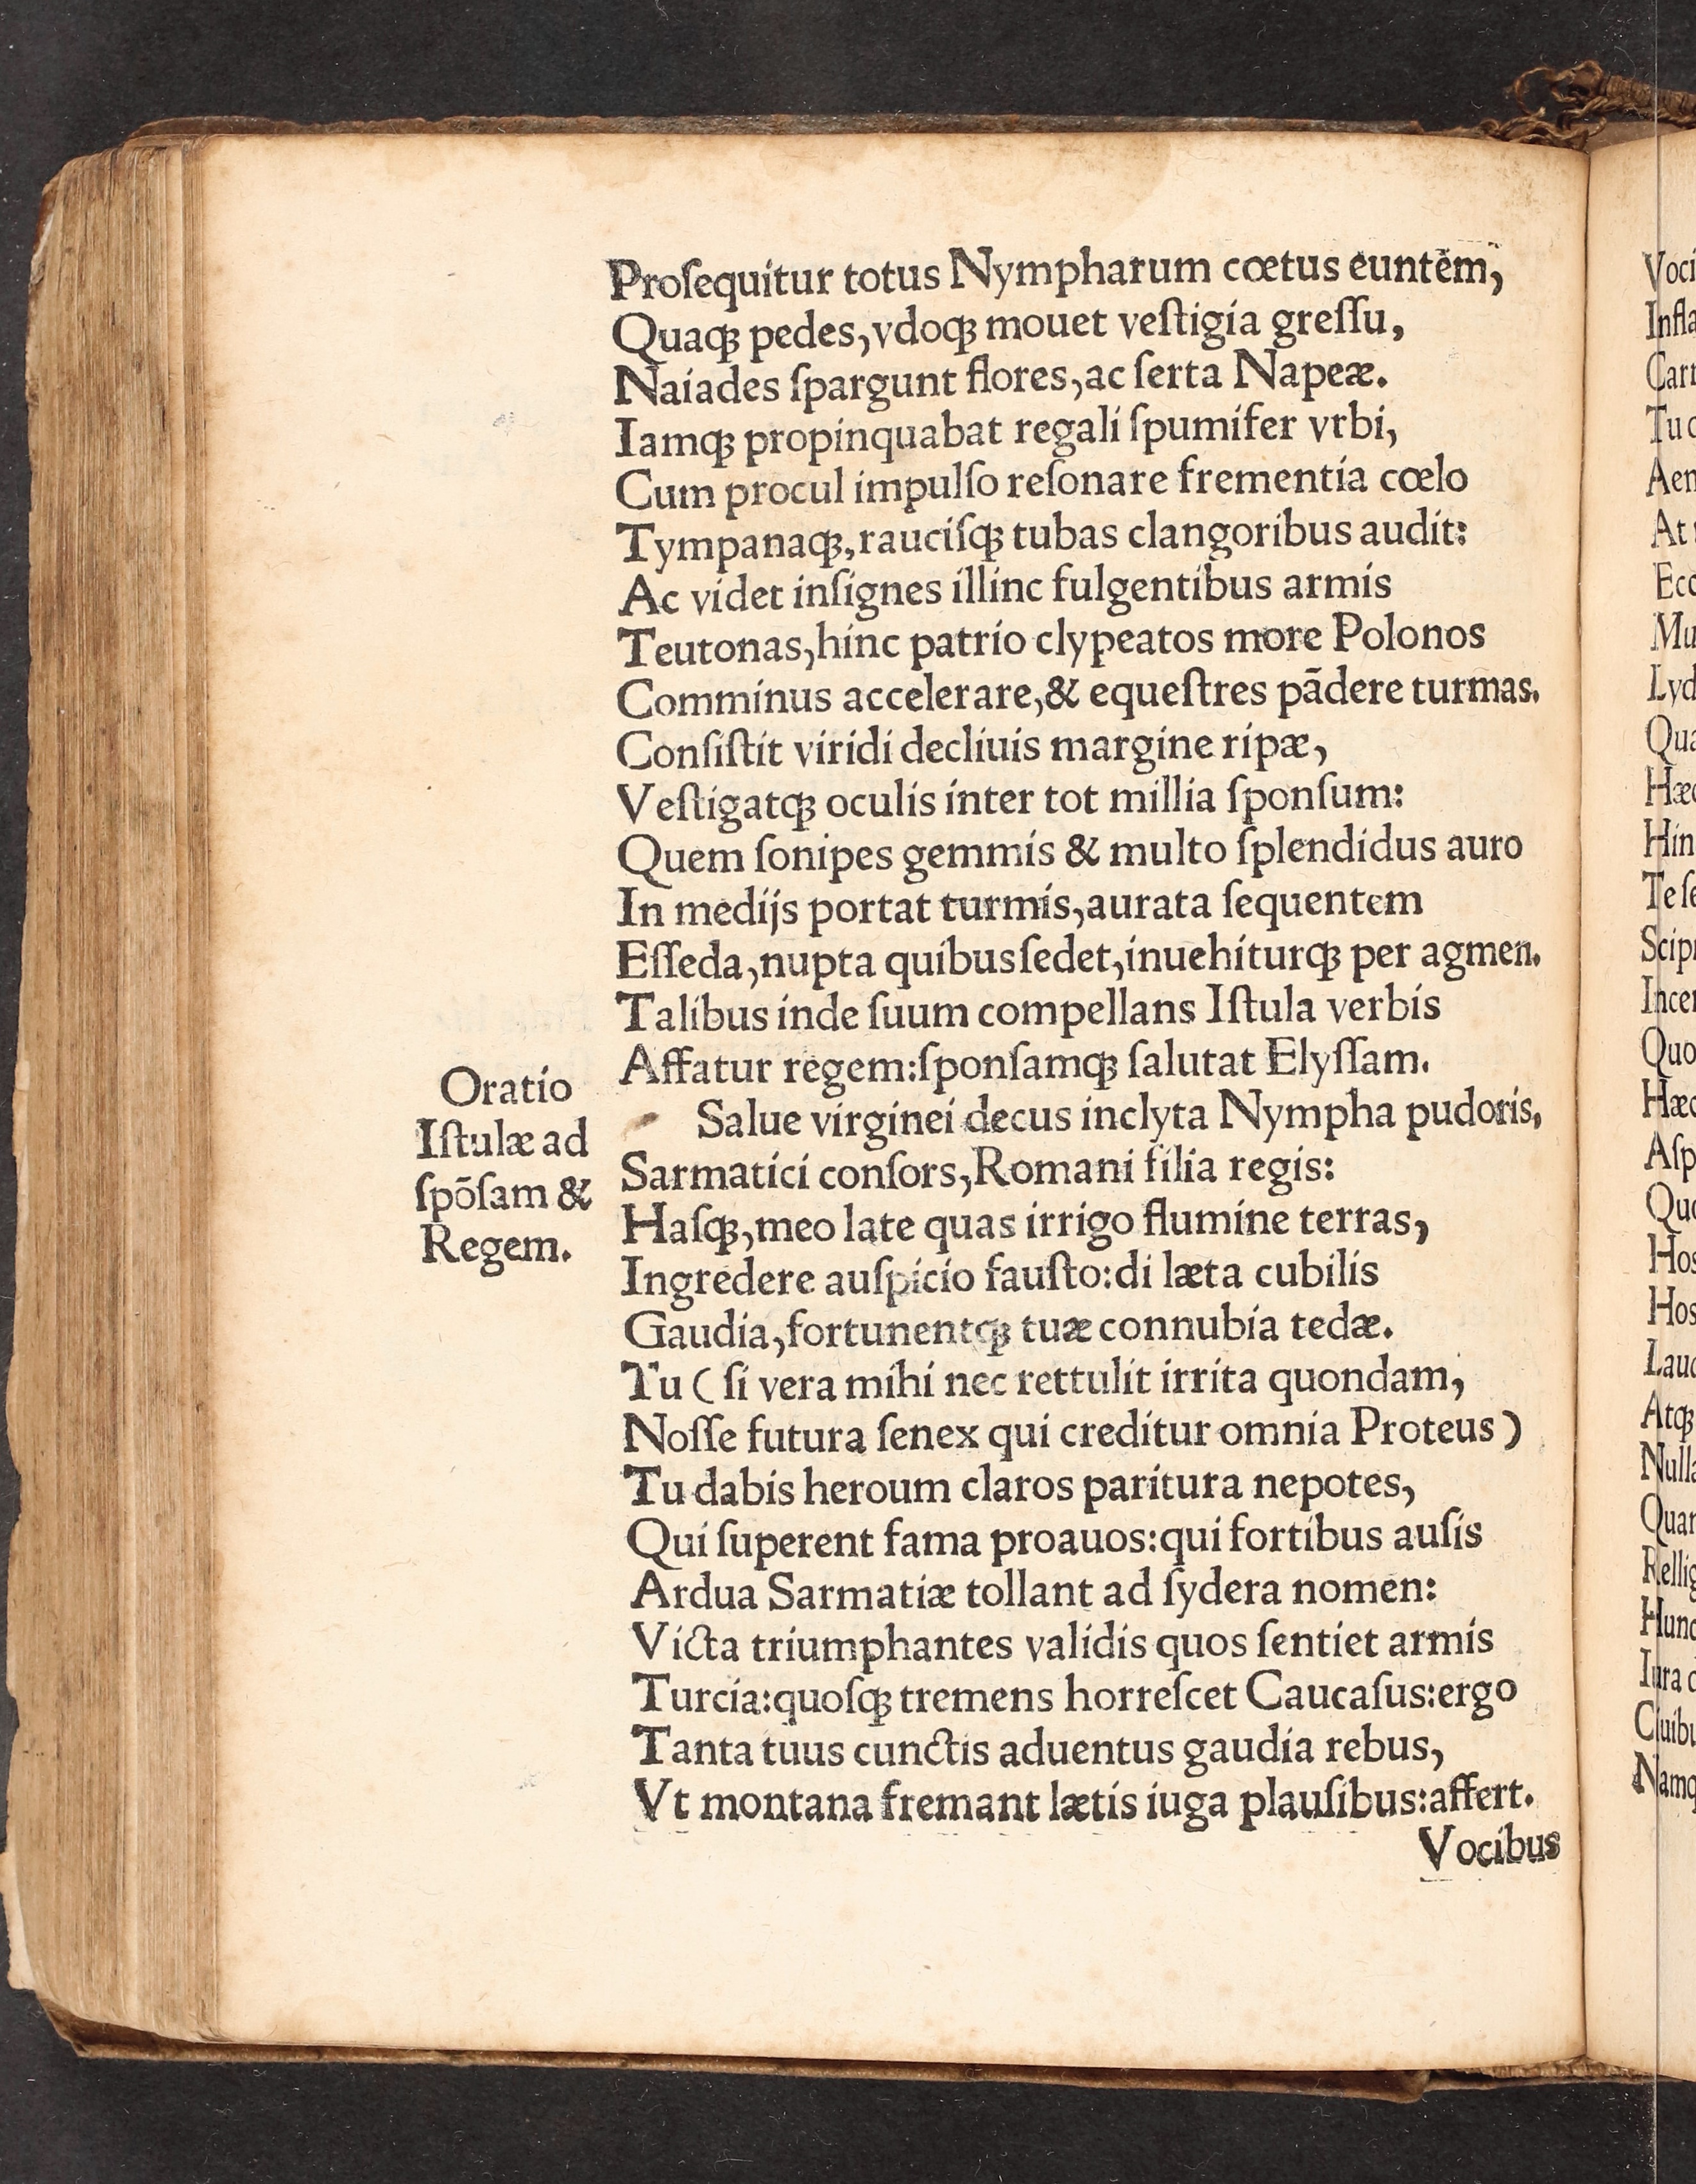 Proſequitur totus Nympharum cœtus euntēm,
Quaqꝫ pedes, vdoqꝫ mouet veſtigia greſſu,
Naiades ſpargunt flores, ac ſerta Napeæ.
Iamqꝫ propinquabat regali ſpumifer vrbi,
Cum procul impulſo reſonare frementia cœlo
Tympanaqꝫ, rauciſqꝫ tubas clangoribus audit:
Ac videt inſignes illinc fulgentibus armis
Teutonas, hinc patrio clypeatos more Polonos
Comminus accelerare, & equeſtres pādere turmas.
Conſiſtit viridi decliuis margine ripæ,
Veſtigatqꝫ oculis inter tot millia ſponſum:
Quem ſonipes gemmis & multo ſplendidus auro
In medijs portat turmis, aurata ſequentem
Eſſeda, nupta quibus ſedet, inuehiturqꝫ per agmen.
Talibus inde ſuum compellans Iſtula verbis
Affatur regem: ſponſamqꝫ ſalutat Elyſſam.
Oratio
Iſtulæ ad
ſpōſam &
Regem.
Salue virginei decus inclyta Nympha pudoris,
Sarmatici conſors, Romani filia regis:
Haſqꝫ, meo late quas irrigo flumine terras,
Ingredere auſpicio fauſto: di læta cubilis
Gaudia, fortunentqꝫ tuæ connubia tedæ.
Tu ( ſi vera mihi nec rettulit irrita quondam,
Noſſe futura ſenex qui creditur omnia Proteus )
Tu dabis heroum claros paritura nepotes,
Qui ſuperent fama proauos: qui fortibus auſis
Ardua Sarmatiæ tollant ad ſydera nomen:
Victa triumphantes validis quos ſentiet armis
Turcia: quoſqꝫ tremens horreſcet Caucaſus: ergo
Tanta tuus cunctis aduentus gaudia rebus,
Vt montana fremant lætis iuga plauſibus: affert.
Vocibus